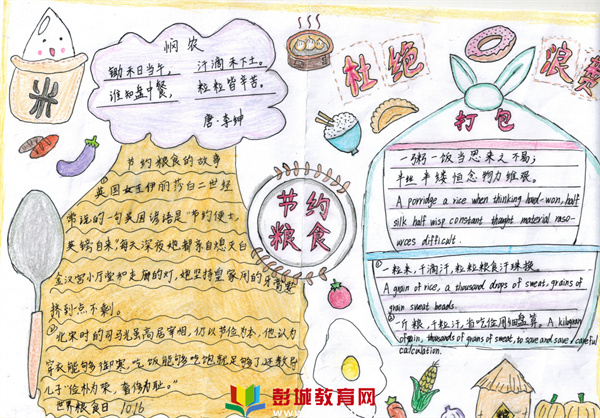 悯农
锄禾日当午, 汗滴禾下土。
谁知盘中餐, 粒粒皆辛苦。
唐·李绅
米
节约粮食的故事
①英国女王伊丽莎白二世经
常说的一句英国谚语是"节约便士,
英镑自来"每天深夜她都亲自熄灭白
金汉宫小厅堂和走廊的灯,她坚持皇家用的牙膏要
挤到点不剩。
②北宋时的司马光虽高居宰相,仍以节俭为本,他认为
穿衣能够御寒,吃饭能够吃饱就足够了还教导
儿子"俭朴为荣,奢侈为耻。"
世界粮食日 10.16
节约
粮食
杜绝
浪费
打包
一粥一饭当思来之不易;
半丝半缕恒念物力维艰。
A porridge a rice when thinking hard-won, half
silk half wisp constant thought material reso-
urces difficult.
①一粒米,千滴汗,粒粒粮食汗珠换。
A grain of rice, a thousand drops of sweat, grains of
grain sweat beads.
②一斤粮,千粒汗,省吃俭用细盘算。A kilogram
of grain, thousands of grains of sweat, to save and save careful
calculation.
彭城教育网